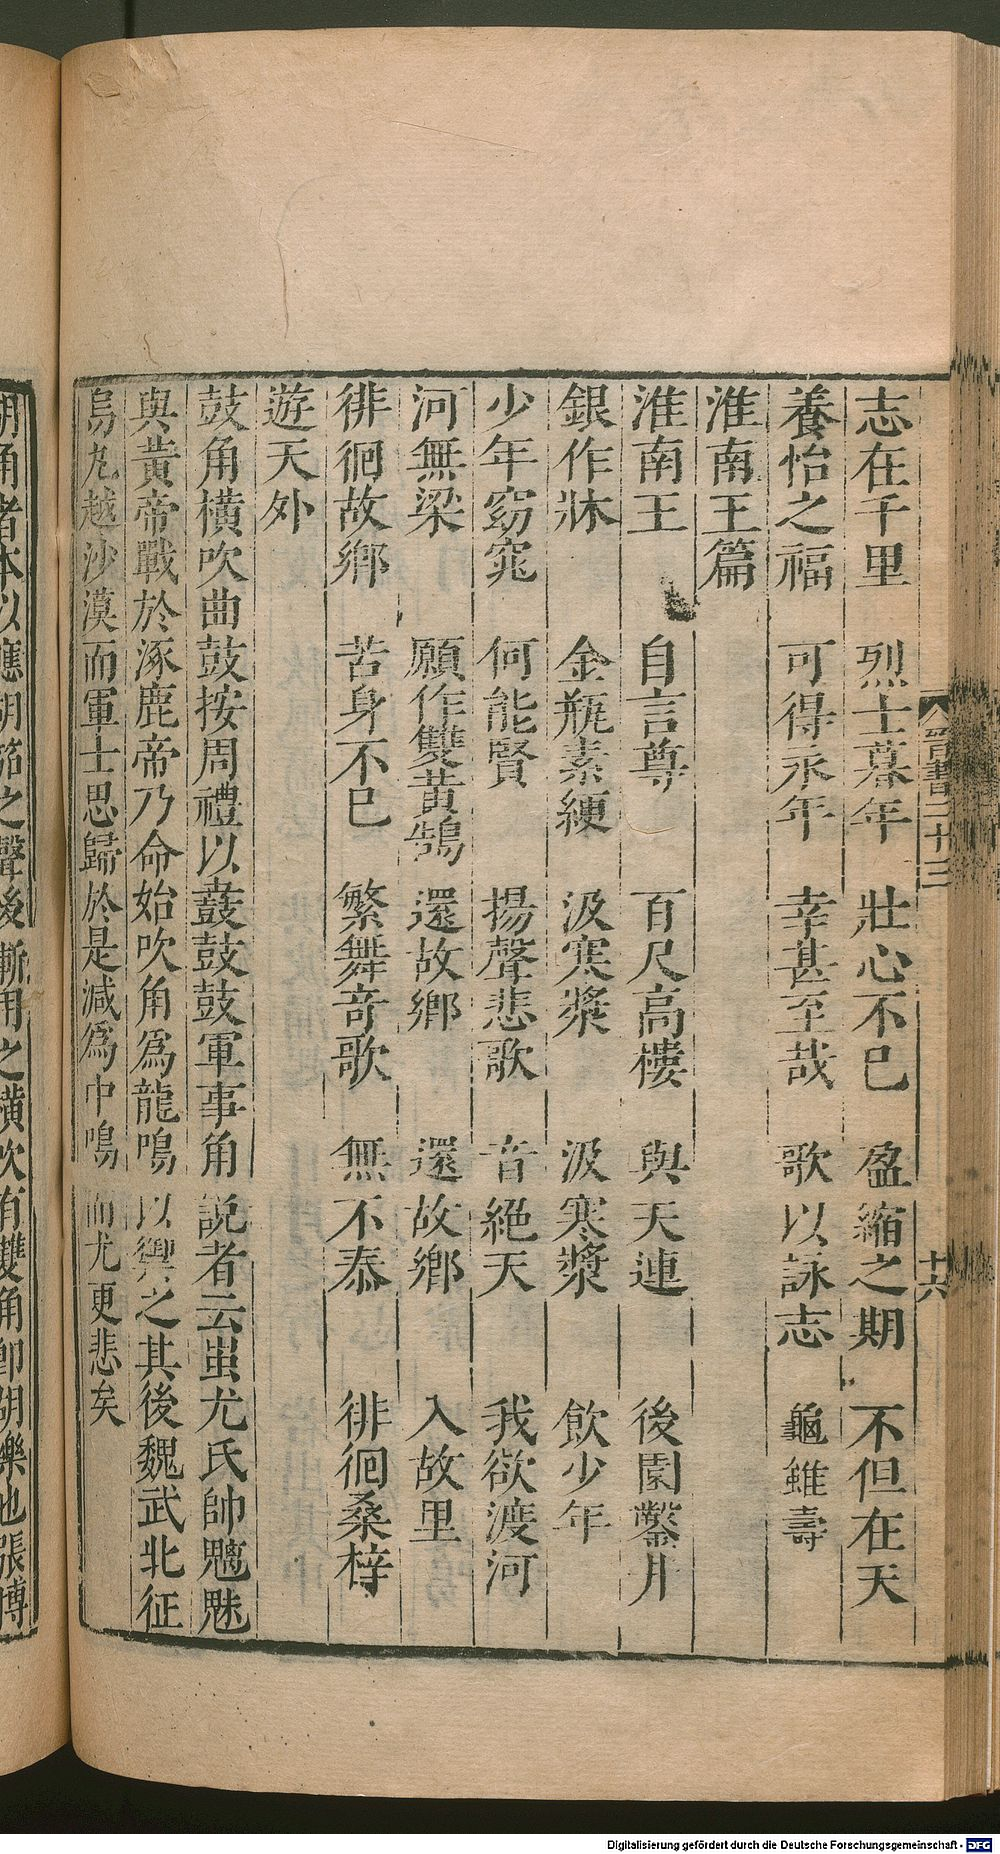 志在千里　烈士暮年　壯心不已　盈縮之期　不但在天
養怡之福　可得永年　幸甚至哉　歌以詠志　龜雖壽
淮南王篇
淮南王　自言尊　百尺高樓　與天連　後園鑿井
銀作牀　金瓶素綆　汲寒漿　汲寒漿　飲少年
少年窈窕　何能賢　揚聲悲歌　音絕天　我欲渡河
河無梁　願作雙黃鵠　還故鄉　還故鄉　入故里
徘徊故鄉　苦身不已　繁舞奇歌　無不泰　徘徊桑梓
遊天外
鼓角橫吹曲鼓按周禮以鼖鼓鼓軍事角說者云蚩尤氏帥魑魅
與黃帝戰於涿鹿帝乃命始吹角爲龍鳴以禦之其後魏武北征
烏丸越沙漠而軍士思歸於是減爲中鳴而尤更悲矣
胡角者本以應胡笳之聲後漸用之橫吹有雙角卽胡樂也張博
晉書二十三
十六
Digitalisierung gefördert durch die Deutsche Forschungsgemeinschaft - DFG